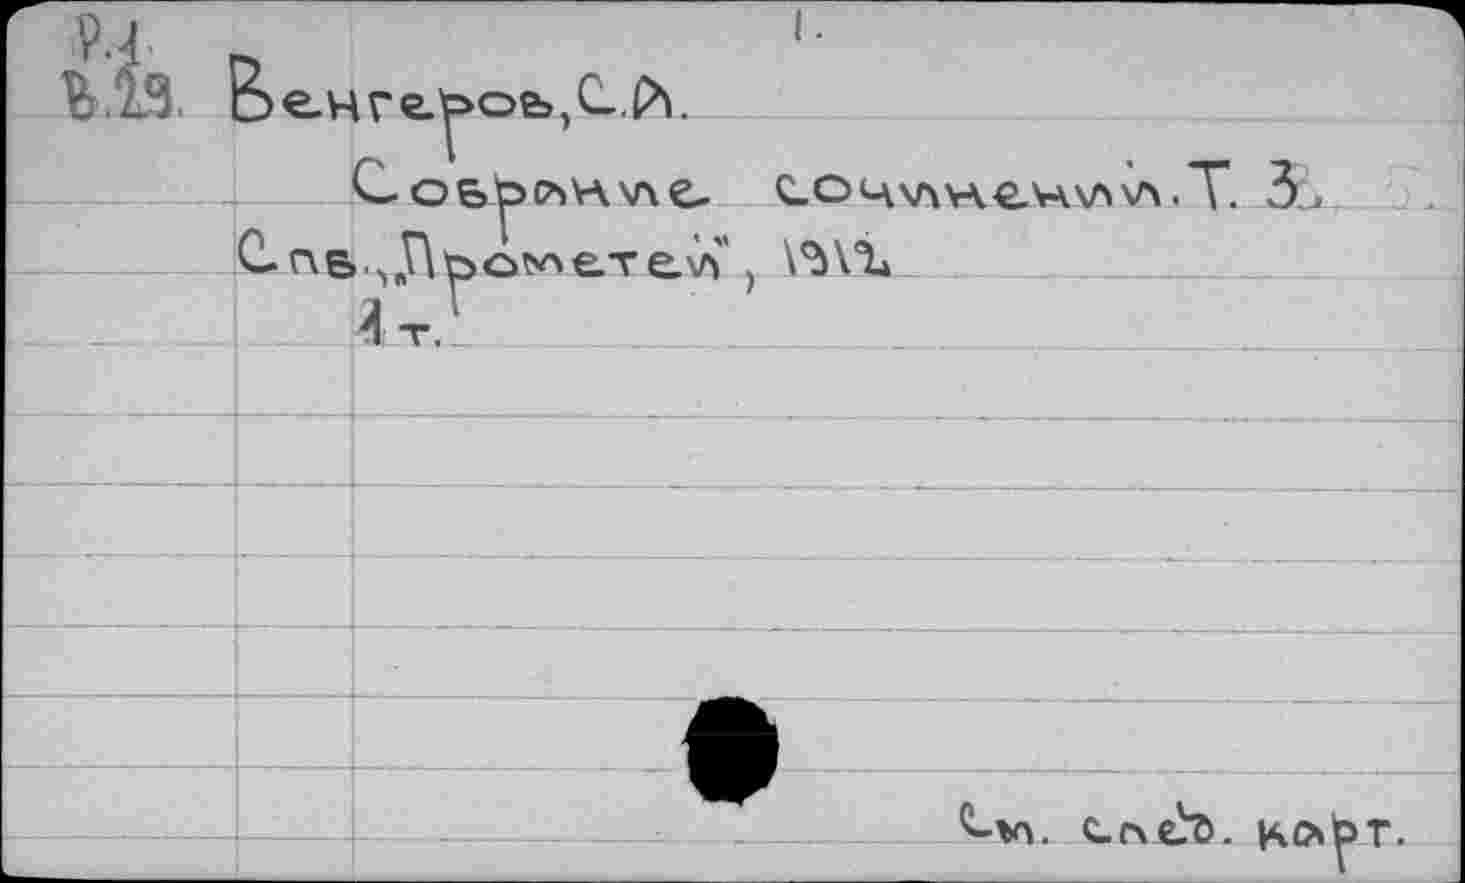 1.
Р.1
В.29. Венгеров, С.А.
Собрание сочинений. Т. 3.
Спб. „Прометей", 1912
1 т.
См. след. карт.